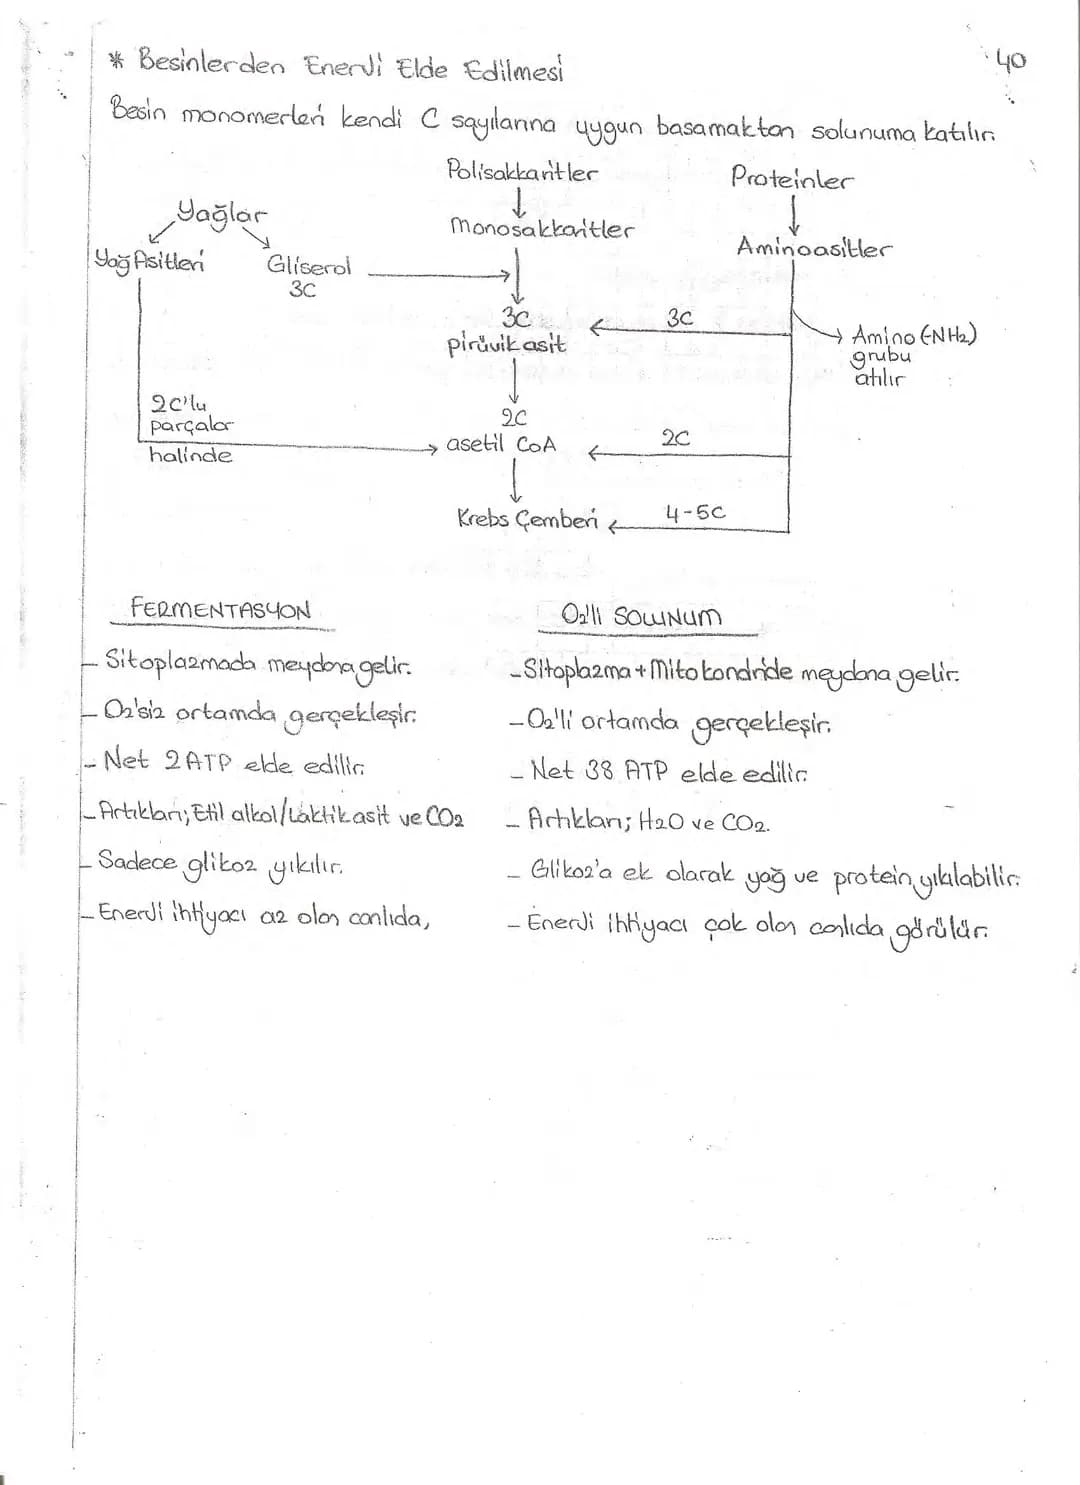 40
* Besinlerden Enerji Elde Edilmesi
Besin monomerleri kendi C sayılarına uygun basamaktan solunuma katılır.
Polisakkaritler
Proteinler
Yağlar
Monosakkaritler
Aminoasitler
Yağ Asitleri
Gliserol
3C
3C
pirüvik asit
3C
Amino (-NH2)
grubu
atılır
2C'lu
parçalar
halinde
2C
asetil CoA
2C
Krebs Çemberi
4-5C
FERMENTASYON
Sitoplazmada meydana gelir.
- O2'siz ortamda gerçekleşir.
- Net 2 ATP elde edilir.
- Artıkları; Etil alkol/Laktik asit ve CO2
- Sadece glikoz yıkılır.
- Enerji ihtiyacı az olan canlıda,
O2'li SOLUNUM
- Sitoplazma + Mitokondride meydana gelir.
- O2'li ortamda gerçekleşir.
- Net 38 ATP elde edilir.
- Artıkları; H2O ve CO2.
- Glikoz'a ek olarak yağ ve protein yıkılabilir.
- Enerji ihtiyacı çok olan canlıda görülür.